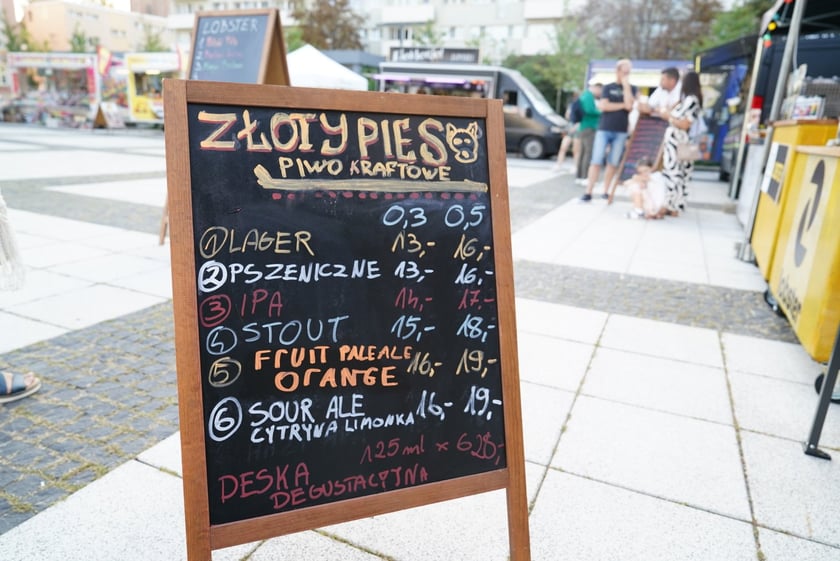 LOBSTER
ZŁOTY PIES
PIWO KRAFTOWE
0,3 0,5
1 LAGER 13,- 16,-
2 PSZENICZNE 13,- 16,-
3 IPA 14,- 17,-
4 STOUT 15,- 18,-
5 FRUIT PALE ALE 16,- 19,-
ORANGE
6 SOUR ALE 16,- 19,-
CYTRYNA LIMONKA
125ml x 6 28,-
DESKA
DEGUSTACYJNA